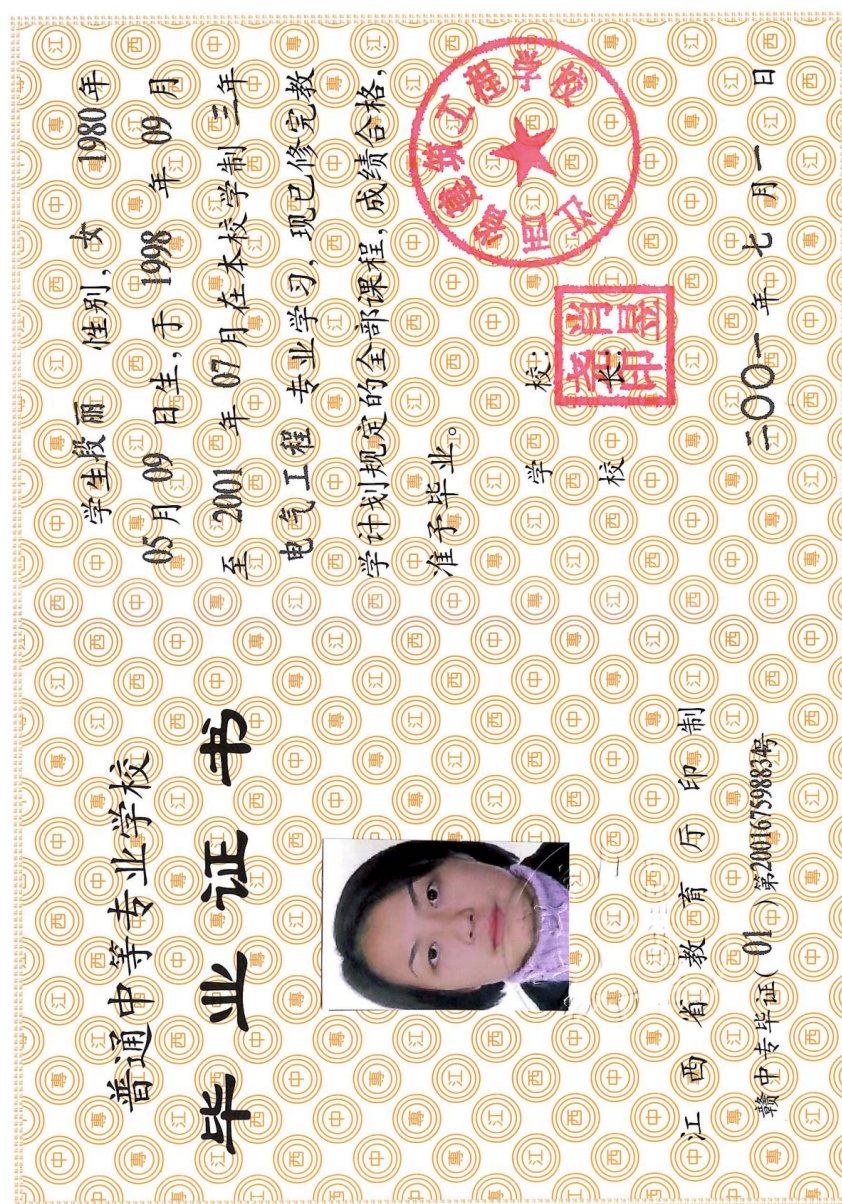 普通中等专业学校
毕业证书
江西省教育厅印制
赣中专毕证(01)第200167598834号
学生段丽 性别,女 1980年
05月09日生,于1998年09月
至2001年07月在本校学制三年
电气工程 专业学习,现已修完教
学计划规定的全部课程,成绩合格,
准予毕业。
学校:
校长:
二00一年七月一日